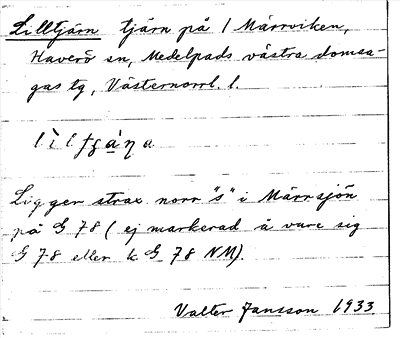 Lilltjärn tjärn på / Märrviken,
Haverö sn, Medelpads västra domsa-
gas tg, Västernorrl. l.
Ligger strax norr "s" i Märrsjön
på G 78 (ej markerad å vare sig
G 78 eller k G 78 NM).
Valter Jansson 1933